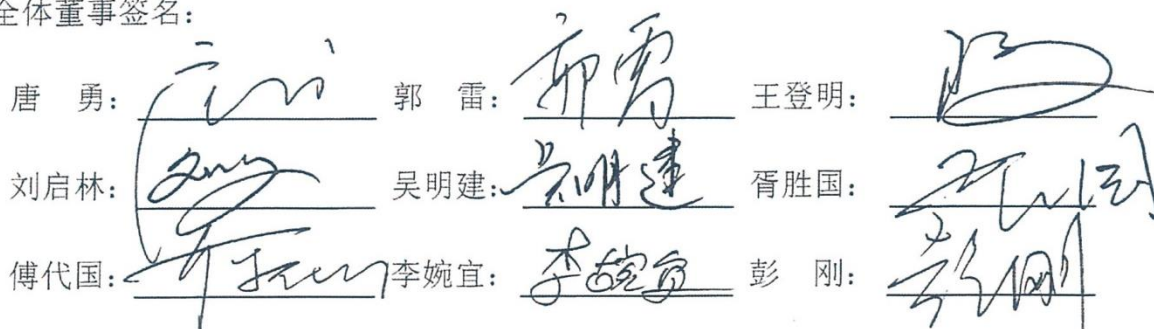 全体董事签名：
唐 勇： 郭 雷： 郭雷 王登明：
刘启林： 吴明建： 吴明建 胥胜国：
傅代国： 李婉宜： 李婉宜 彭 刚： 彭刚